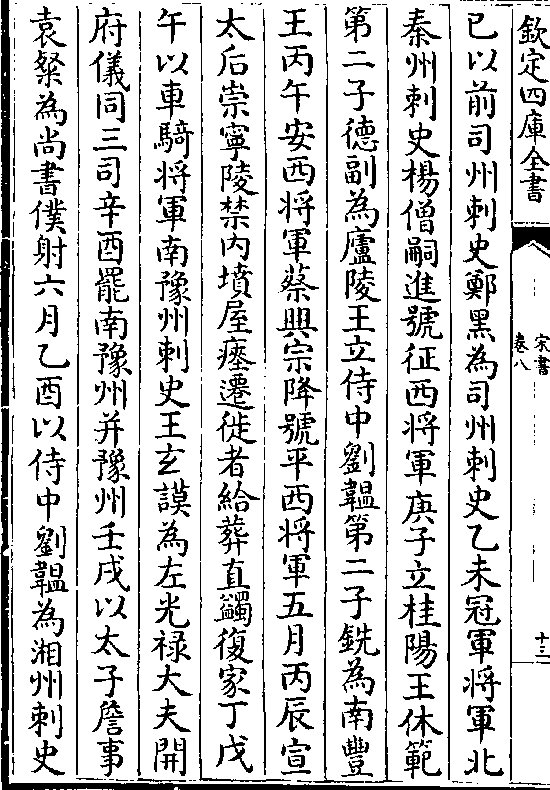 欽定四庫全書
宋書
卷八
十三
已以前司州刺史鄭黑為司州刺史乙未冠軍將軍北
秦州刺史楊僧嗣進號征西將軍庚子立桂陽王休範
第二子德副為廬陵王立侍中劉韞第二子銑為南豐
王丙午安西將軍蔡興宗降號平西將軍五月丙辰宣
太后崇寧陵禁內墳屋瘞遷徙者給葬直蠲復家丁戊
午以車騎將軍南豫州刺史王玄謨為左光禄大夫開
府儀同三司辛酉罷南豫州并豫州壬戌以太子詹事
袁粲為尚書僕射六月乙酉以侍中劉韞為湘州刺史